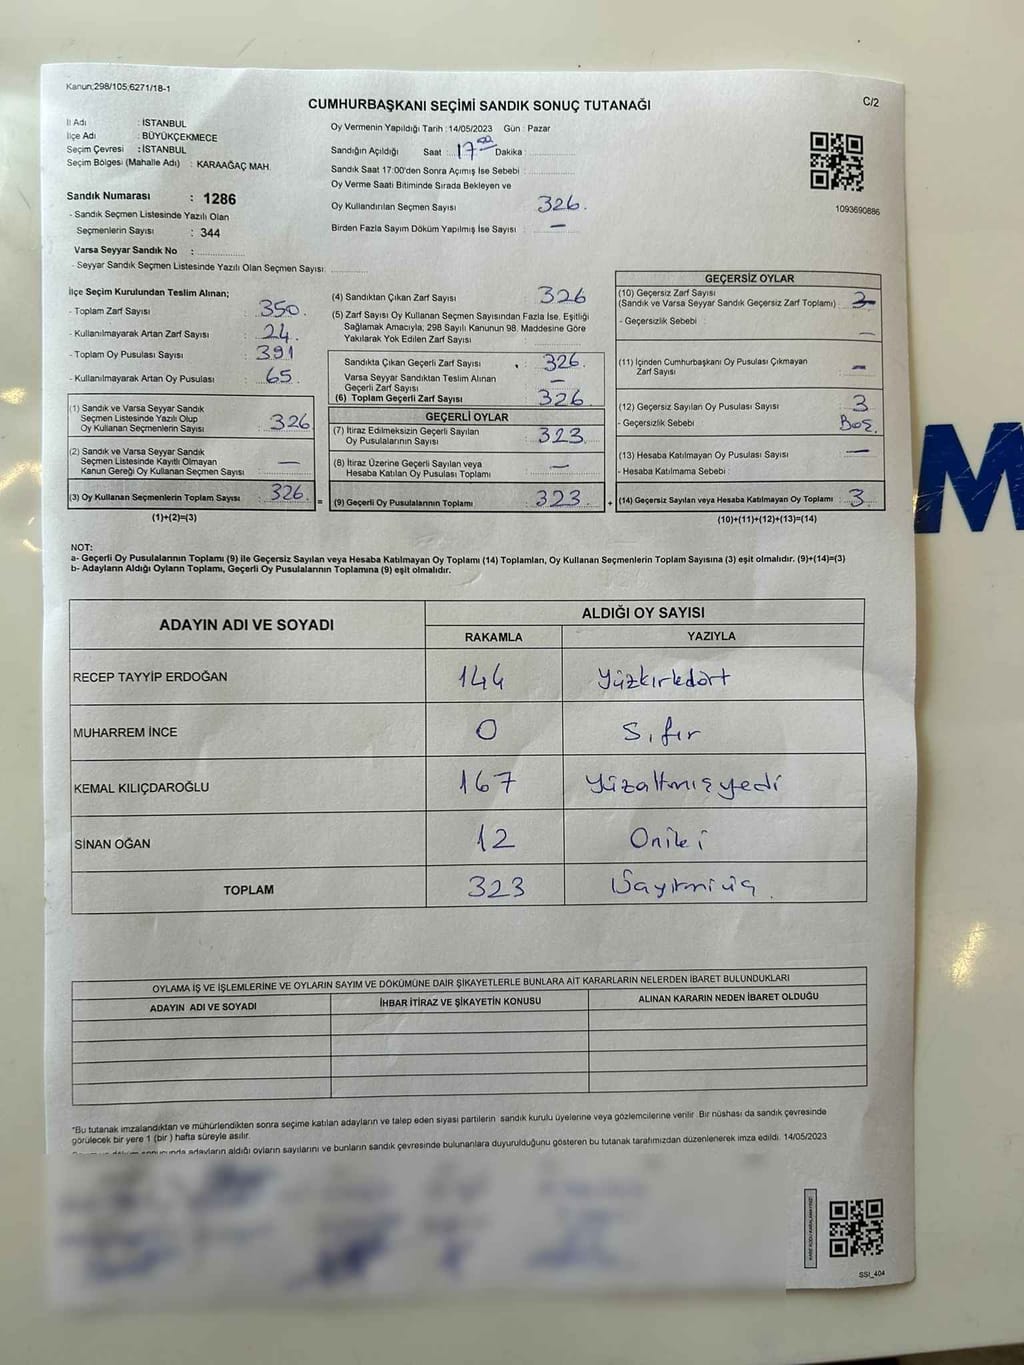 Kanun;298/105;6271/18-1
C/2
CUMHURBAŞKANI SEÇİMİ SANDIK SONUÇ TUTANAĞI
İl Adı : İSTANBUL
İlçe Adı : BÜYÜKÇEKMECE
Seçim Çevresi : İSTANBUL
Seçim Bölgesi (Mahalle Adı) : KARAAĞAÇ MAH.
Sandık Numarası : 1286
- Sandık Seçmen Listesinde Yazılı Olan
Seçmenlerin Sayısı : 344
Varsa Seyyar Sandık No :
- Seyyar Sandık Seçmen Listesinde Yazılı Olan Seçmen Sayısı:
Oy Vermenin Yapıldığı Tarih : 14/05/2023 Gün : Pazar
Sandığın Açıldığı Saat : 17 00 Dakika :
Sandık Saat 17:00'den Sonra Açımış İse Sebebi :
Oy Verme Saati Bitiminde Sırada Bekleyen ve
Oy Kullandırılan Seçmen Sayısı : 326.
Birden Fazla Sayım Döküm Yapılmış İse Sayısı : —
1093690886
İlçe Seçim Kurulundan Teslim Alınan;
- Toplam Zarf Sayısı : 350.
- Kullanılmayarak Artan Zarf Sayısı : 24.
- Toplam Oy Pusulası Sayısı : 391
- Kullanılmayarak Artan Oy Pusulası : 65.
(1) Sandık ve Varsa Seyyar Sandık
Seçmen Listesinde Yazılı Olup
Oy Kullanan Seçmenlerin Sayısı : 326
(2) Sandık ve Varsa Seyyar Sandık
Seçmen Listesinde Kayıtlı Olmayan
Kanun Gereği Oy Kullanan Seçmen Sayısı : —
(3) Oy Kullanan Seçmenlerin Toplam Sayısı : 326. =
(1)+(2)=(3)
(4) Sandıktan Çıkan Zarf Sayısı : 326
(5) Zarf Sayısı Oy Kullanan Seçmen Sayısından Fazla İse, Eşitliği
Sağlamak Amacıyla; 298 Sayılı Kanunun 98. Maddesine Göre
Yakılarak Yok Edilen Zarf Sayısı :
Sandıkta Çıkan Geçerli Zarf Sayısı : 326.
Varsa Seyyar Sandıktan Teslim Alınan
Geçerli Zarf Sayısı : —
(6) Toplam Geçerli Zarf Sayısı : 326
GEÇERLİ OYLAR
(7) İtiraz Edilmeksizin Geçerli Sayılan
Oy Pusulalarının Sayısı : 323.
(8) İtiraz Üzerine Geçerli Sayılan veya
Hesaba Katılan Oy Pusulası Toplamı : —
(9) Geçerli Oy Pusulalarının Toplamı : 323. +
GEÇERSİZ OYLAR
(10) Geçersiz Zarf Sayısı
(Sandık ve Varsa Seyyar Sandık Geçersiz Zarf Toplamı) : 3
- Geçersizlik Sebebi : —
(11) İçinden Cumhurbaşkanı Oy Pusulası Çıkmayan
Zarf Sayısı : —
(12) Geçersiz Sayılan Oy Pusulası Sayısı : 3
- Geçersizlik Sebebi : Boş.
(13) Hesaba Katılmayan Oy Pusulası Sayısı : —
- Hesaba Katılmama Sebebi :
(14) Geçersiz Sayılan veya Hesaba Katılmayan Oy Toplamı : 3.
(10)+(11)+(12)+(13)=(14)
NOT:
a- Geçerli Oy Pusulalarının Toplamı (9) ile Geçersiz Sayılan veya Hesaba Katılmayan Oy Toplamı (14) Toplamları, Oy Kullanan Seçmenlerin Toplam Sayısına (3) eşit olmalıdır. (9)+(14)=(3)
b- Adayların Aldığı Oyların Toplamı, Geçerli Oy Pusulalarının Toplamına (9) eşit olmalıdır.
ADAYIN ADI VE SOYADI ALDIĞI OY SAYISI
RAKAMLA YAZIYLA
RECEP TAYYİP ERDOĞAN 144 Yüzkırkdört
MUHARREM İNCE 0 Sıfır
KEMAL KILIÇDAROĞLU 167 Yüzaltmışyedi
SİNAN OĞAN 12 Oniki
TOPLAM 323
OYLAMA İŞ VE İŞLEMLERİNE VE OYLARIN SAYIM VE DÖKÜMÜNE DAİR ŞİKAYETLERLE BUNLARA AİT KARARLARIN NELERDEN İBARET BULUNDUKLARI
ADAYIN ADI VE SOYADI İHBAR İTİRAZ VE ŞİKAYETİN KONUSU ALINAN KARARIN NEDEN İBARET OLDUĞU
*Bu tutanak imzalandıktan ve mühürlendikten sonra seçime katılan adayların ve talep eden siyasi partilerin sandık kurulu üyelerine veya gözlemcilerine verilir. Bir nüshası da sandık çevresinde
görülecek bir yere 1 (bir) hafta süreyle asılır.
adayların aldığı oyların sayılarını ve bunların sandık çevresinde bulunanlara duyurulduğunu gösteren bu tutanak tarafımızdan düzenlenerek imza edildi. 14/05/2023
SSİ_404
M